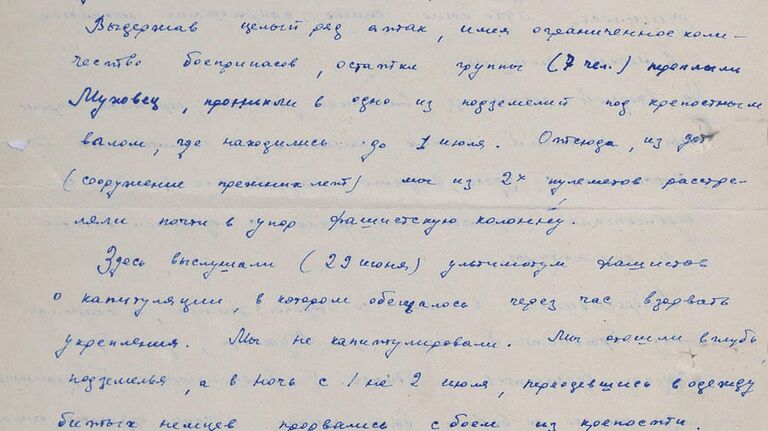 Выдержав целый ряд атак, имея ограниченное коли-
чество боеприпасов, остатки группы (7 чел.) переплыли
Муховец, проникли в одно из подземелий под крепостным
валом, где находились до 1 июля. Отсюда, из дот
(сооружение прежних лет) мы из 2х пулеметов расстре-
ляли почти в упор фашистскую колонну.
Здесь выслушали (29 июня) ультиматум фашистов
о капитуляции, в котором обещалось через час взорвать
укрепления. Мы не капитулировали. Мы отошли вглубь
подземелья, а в ночь с 1 на 2 июля, переодевшись в одежду
битых немцев прорвались с боем из крепости.